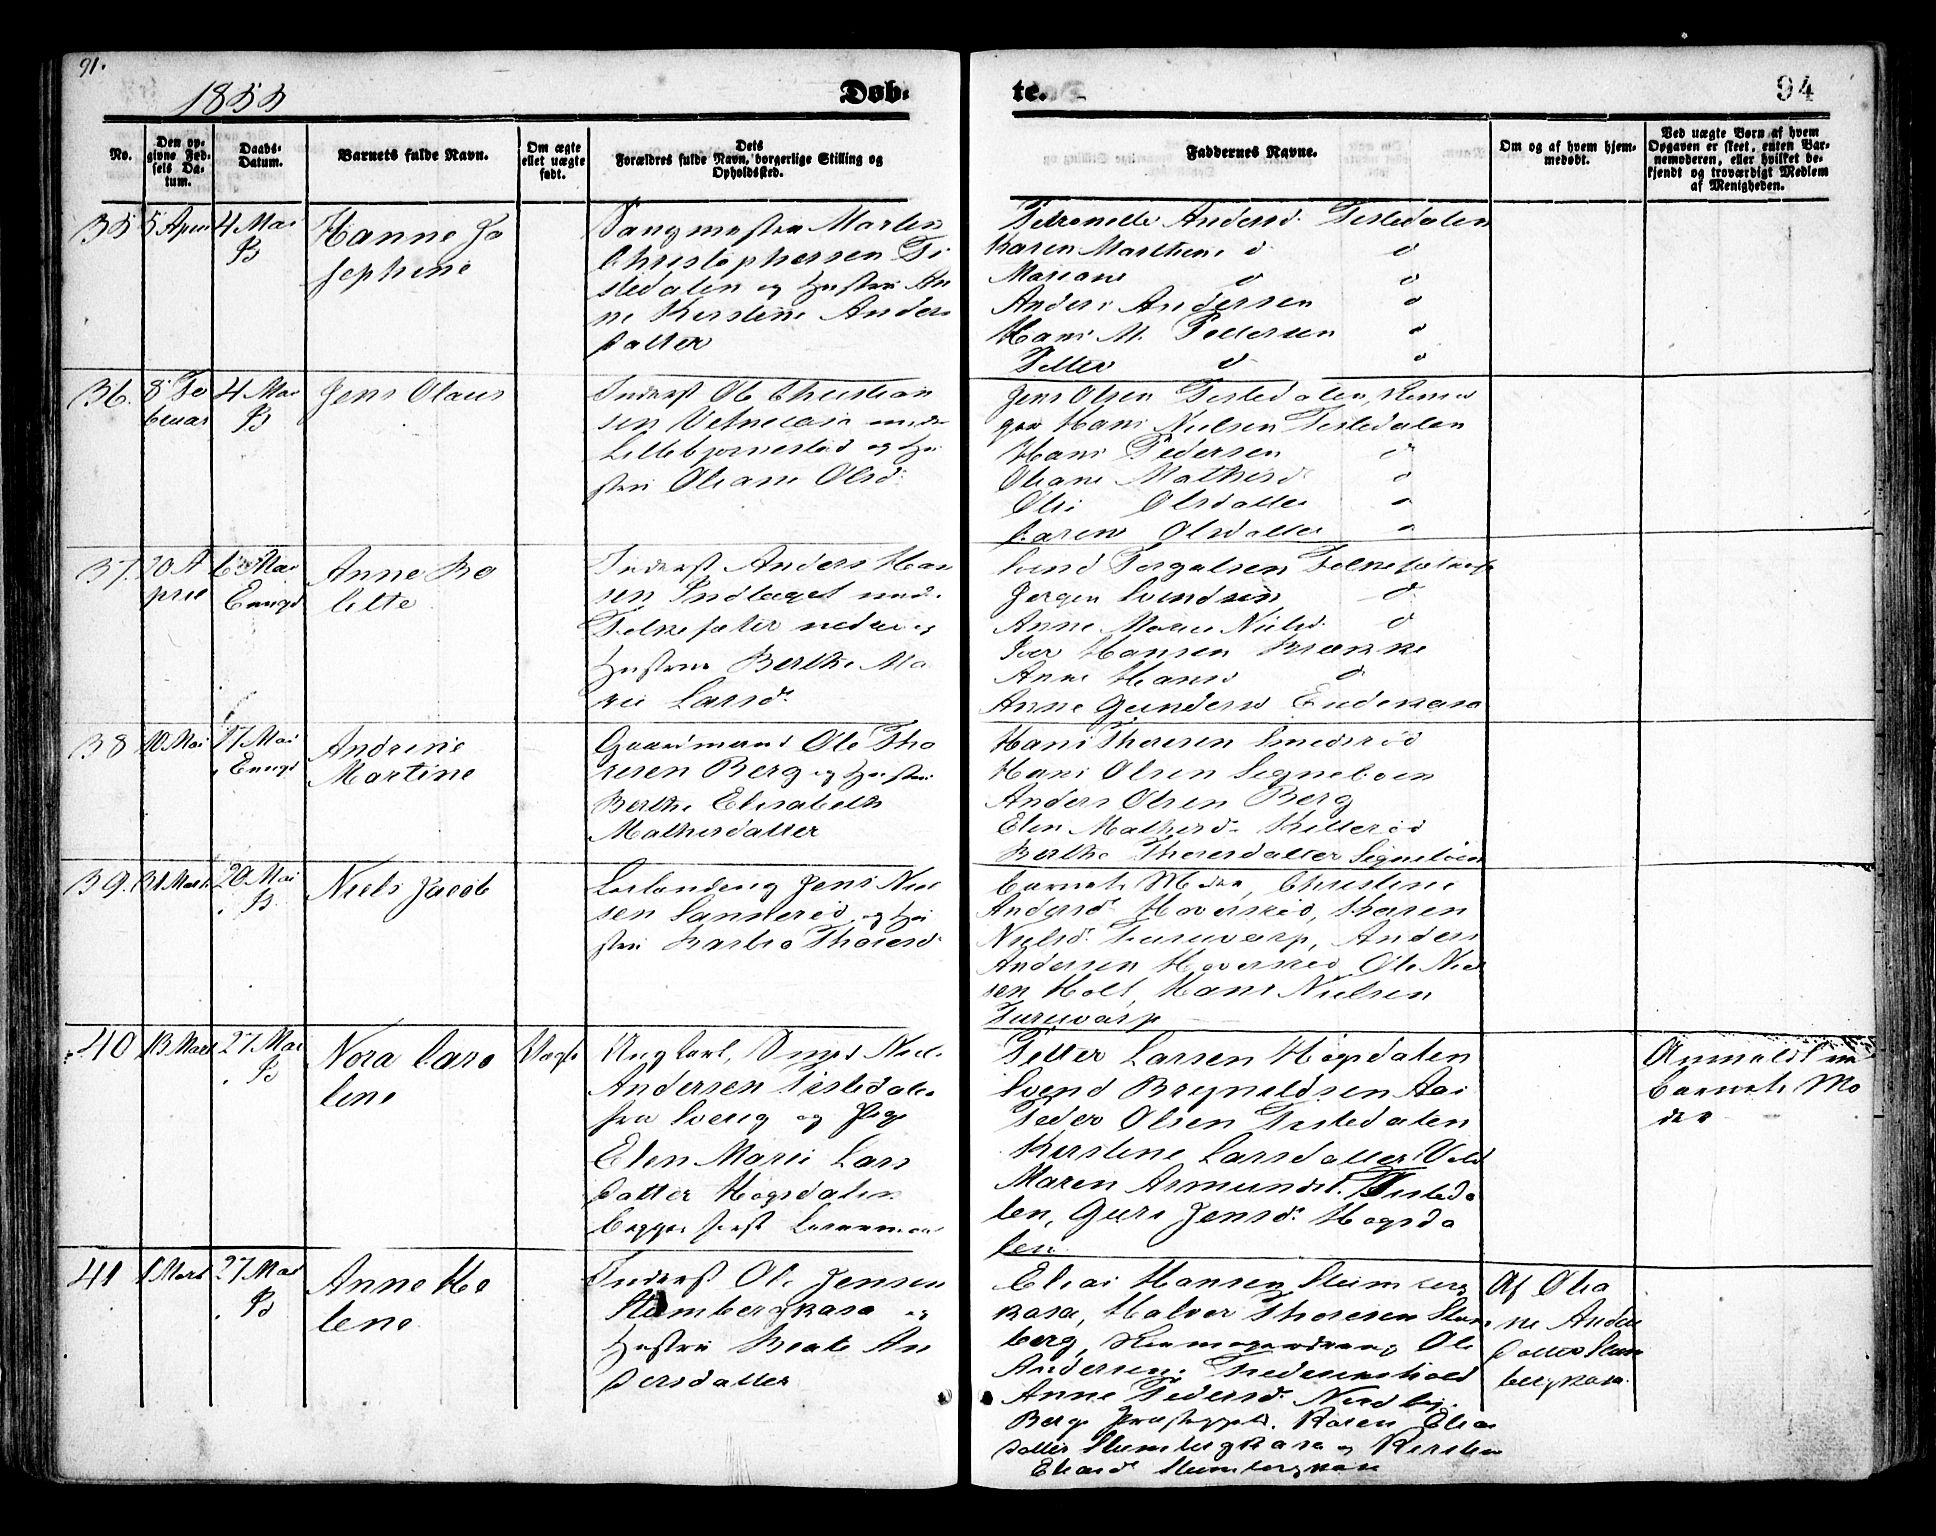 91.
1855
Døb-
te.
94
No.
Den op-
givne Fød-
sels Da-
tum.
Daabs-
Datum.
Barnets fulde Navn.
Om ægte
ellet uægte
født.
Dets
Forældres fulde Navn, borgerlige Stilling og
Opholdssted.
Faddernes Navne.
Om og af hvem hjem-
medøbt.
Ved uægte Børn af hvem
Opgaven er skeet, enten Bar-
nemoderen, eller hvilket be-
kjendt og troværdigt Medlem
af Menigheden.
35
5 April
4 Mai
B
Hanne Jo
sephine
Sangmester Marten
Christophersen Ti
stedalen og Hustru An
ne Kirstine Anders
datter
Petronelle Andersd. Tistedalen
Karen Marthine d d
Mariane d d
Anders Andersen d
Hans M. Pettersen d
Petter d d
36.
8 Fe
bruar
4 Mai
B
Jens Olaus
Inderst Ole Christian
sen
Lillebjørnestad og Hu
stru Oliane Olsd.
Jens Olsen Tistedalen,
Hans Nielsen Tistedalen
Hans Pedersen d
Oliane Mathisd. d
Olsdatter d
Caren Olsdatter d
37.
20 A
pril
6 Mai
Anne Bo
lette
Inderst Anders Han
sen Indlaget
og
Hustrue Berthe Ma
rie Larsd.
Svend Torgalsen
Jørgen Svendsen d
Anne Marie Nielsd. d
Iver Hansen Brække
Anne Hansd d
Anne Gundersd
38
10 Mai
17 Mai
Andrine
Martine
Gaardmand Ole Tho
resen Berg og Hustru
Berthe Elisabeth
Mathisdatter
Hans Thoresen Smedsrød
Hans Olsen Signeboen
Anders Olsen Berg
Elen Mathisd. Killerød
Berthe Thoresdatter Signeboen
39.
31 Marts
20 Mai
B.
Niels Jacob
Leilænding Jens Niel
sen Sannerød og Hu
stru Barbro Thoresd.
Barnets Moder, Christine
Andersd. Hoverskid, Karen
Nielsd. Furuvarp, Anders
Andersen Hoverskid, Ole Niel
sen Holt, Hans Nielsen
Furuvarp
40
13 Marts
27 Mai
B
Nora Caro
line
Uægte
Ungkarl,
Andersen Tistedalen
fra Sverig og Pige
Elen Marie Lars
datter Høgsdalen
begges første Leiermaal
Petter Larsen Høgsdalen
Svend Brynildsen Aas
Peder Olsen Tistedalen
Kirstine Larsdatter Veld
Maren Asmundsd. Tisteda
len, Guri Jensd. Høgsda
len
Anmeldt
Barnets Mo
der
41
1 Marts
27 Mai
B
Anne He
lene
Inderst Ole Jensen
Stumbergkasa og
Hustru Beate An
dersdatter
Elias Hansen Stumberg
kasa, Halvor Thoresen Stum
berg, Ole
Andersen Frederikshald
Anne Pedersd.
Berg Præstegjeld. Karen Elias
datter Stumbergkasa og Kirstine
Eliasd. Stumbergkasa
Af Olia
ne Anders
datter Stum
bergkasa.